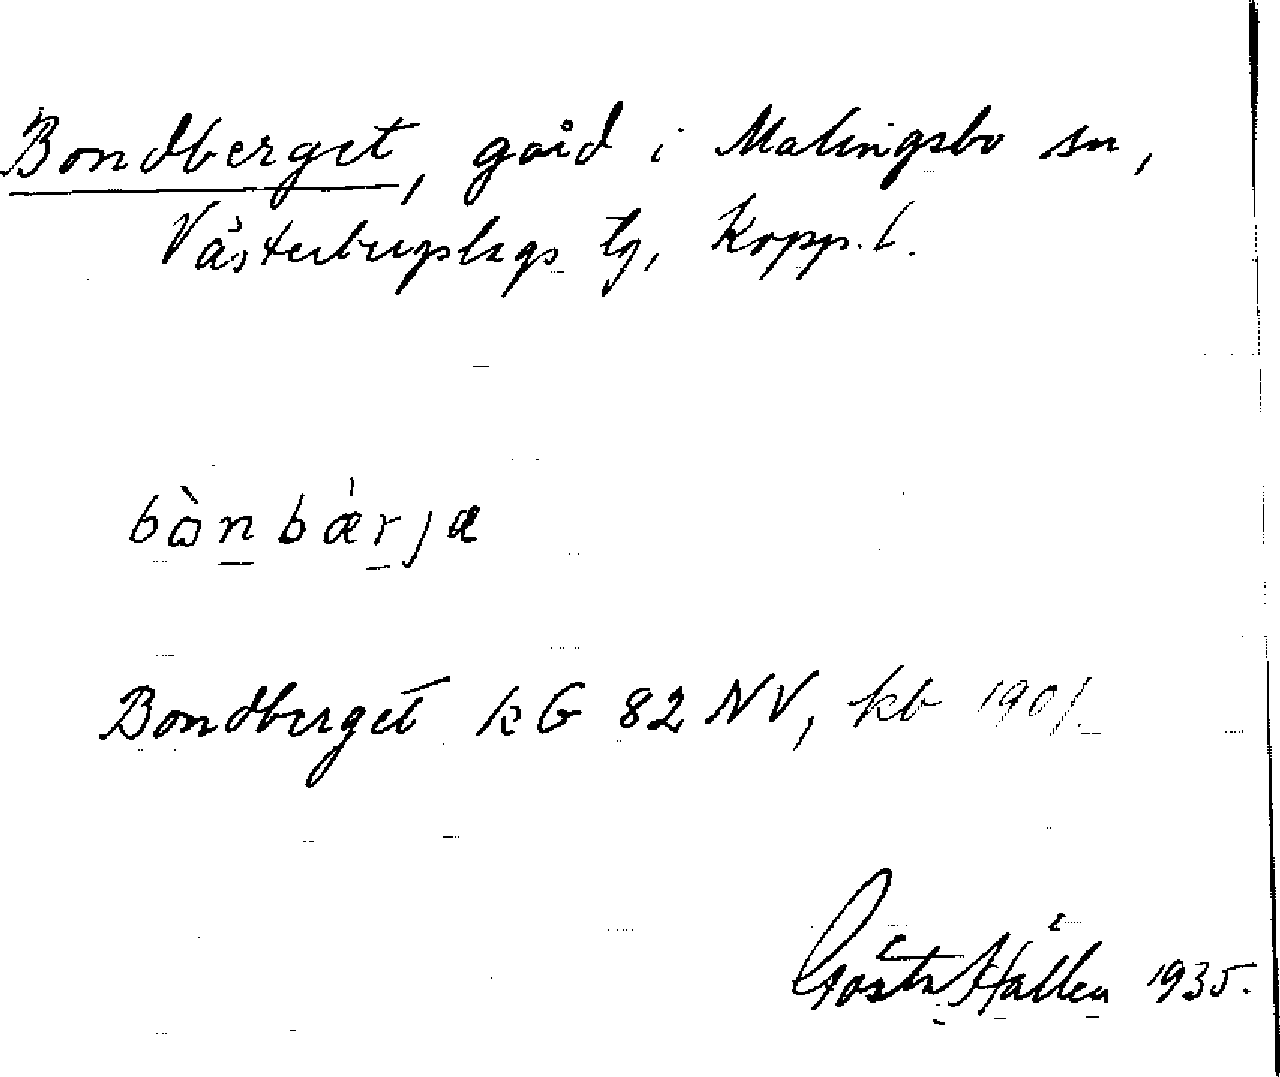 Bondberget, gård i Malingsbo sn,
Västerbergslags tg, Kopp. l.
bònbæ̀rja
Bondberget kG 82 NV, kb 1901.
Gösta Hállen 1935.